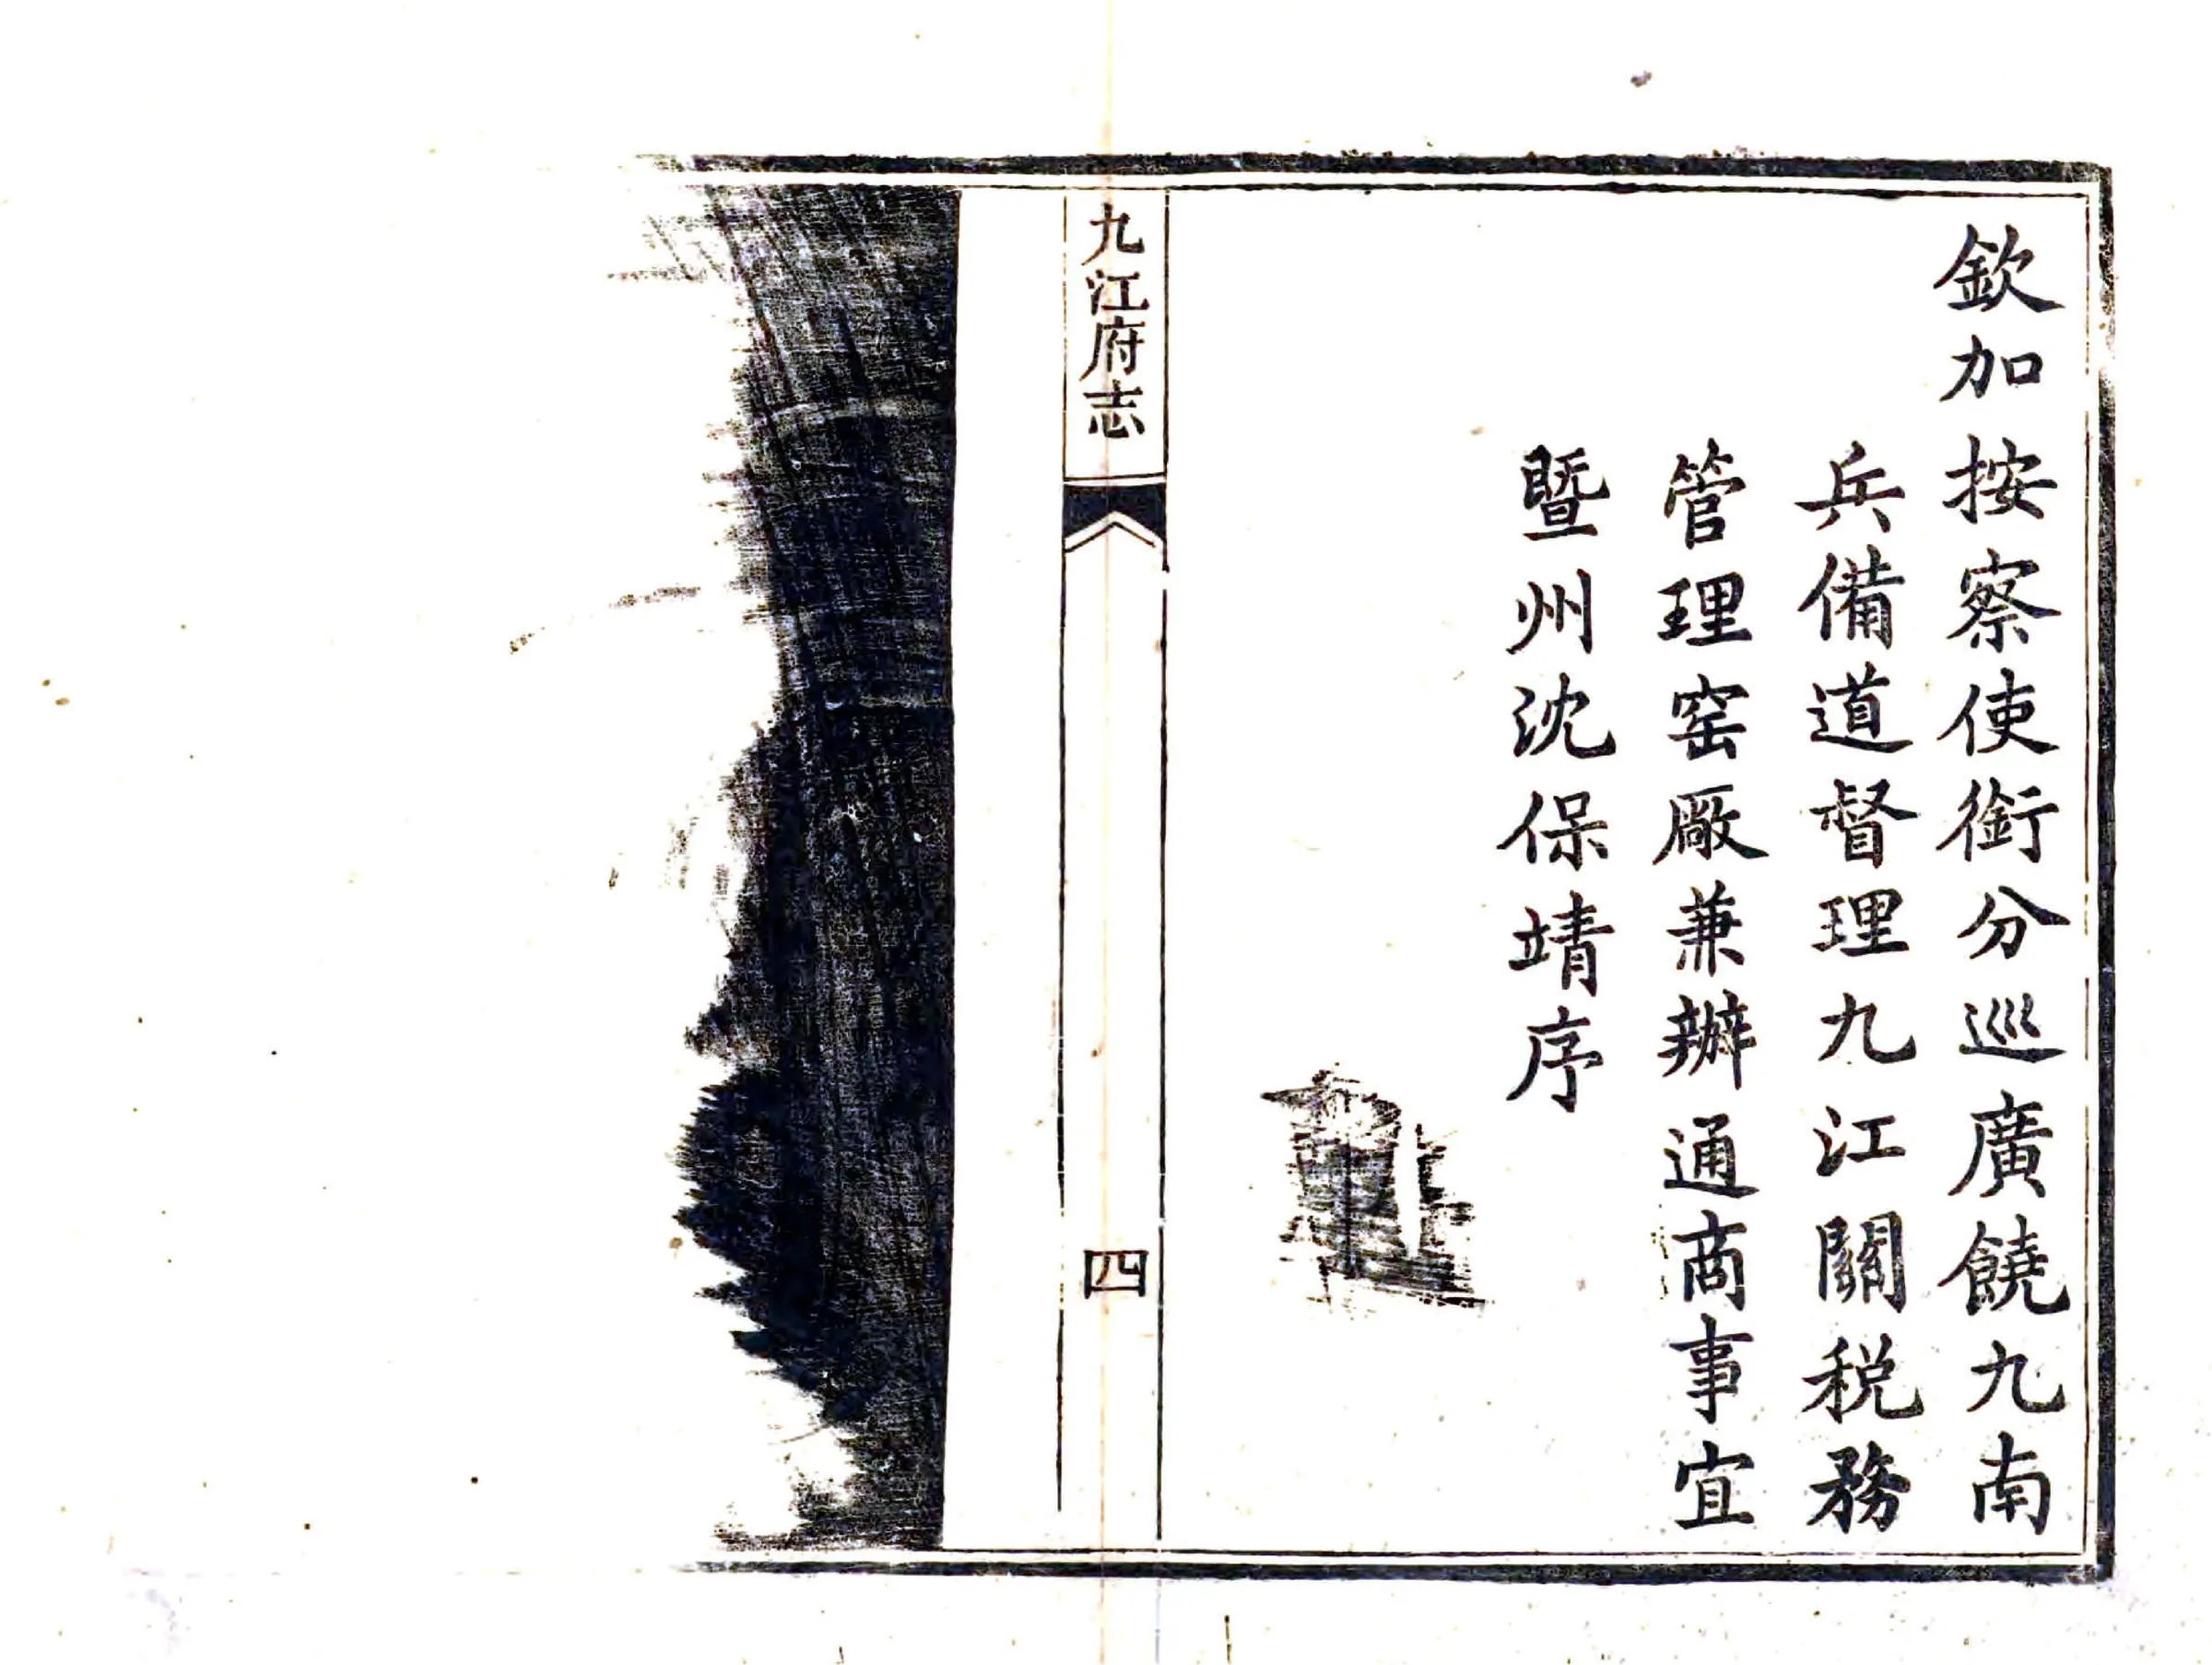 欽加按察使銜分巡廣饒九南
兵備道督理九江關税務
管理窑厰兼辦通商事宜
暨州沈保靖序
九江府志
四